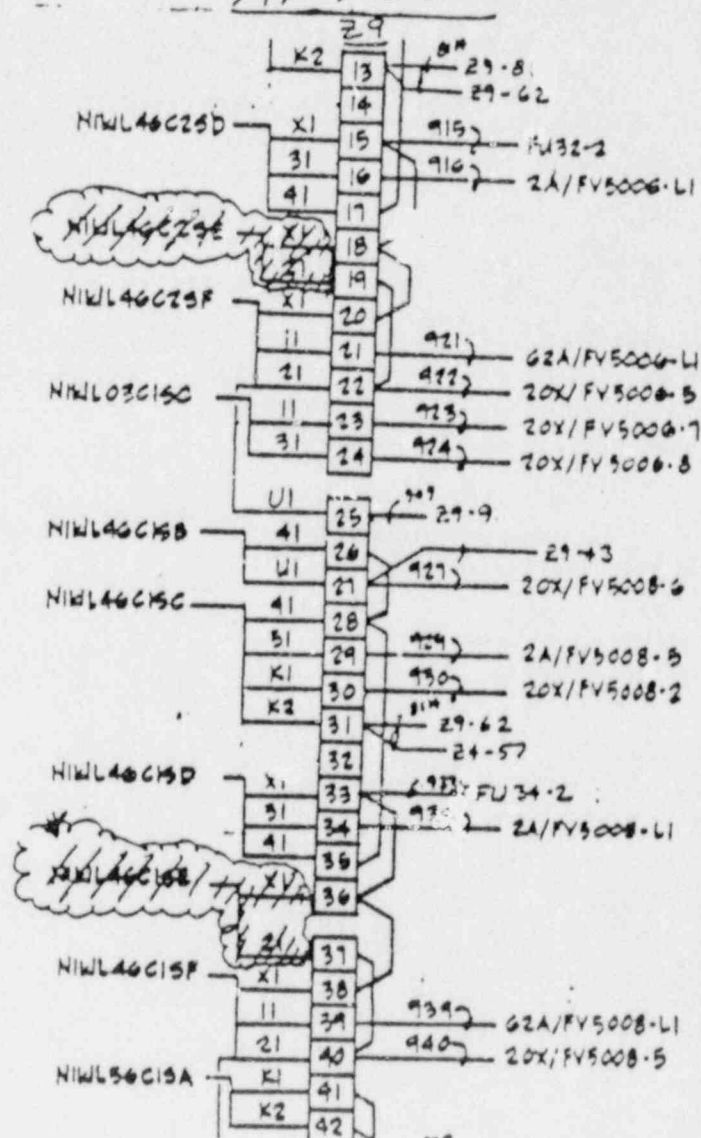 Z9
K2 13 Z9-81
Z9-62
14
NIWL46C25D X1 15 915 FU32-2
31 16 916 2A/FV5006-L1
41 17
X1 18
19
NIWL46C25F X1 20
11 21 921 62A/FV5006-L1
21 22 922 20X/FV5006-5
NIWL03C15C 11 23 923 20X/FV5006-7
31 24 924 20X/FV5006-8
U1 25 909 Z9-9
NIWL46C15B 41 26 Z9-43
U1 27 927 20X/FV5008-6
NIWL46C15C 41 28
51 29 929 2A/FV5008-5
K1 30 930 20X/FV5008-2
K2 31 Z9-62
Z4-57
32
NIWL46C15D X1 33 933 FU34-2
31 34 2A/FV5008-L1
41 35
X1 36
21 37
NIWL46C15F X1 38
11 39 939 62A/FV5008-L1
21 40 940 20X/FV5008-5
NIWL56C15A K1 41
K2 42